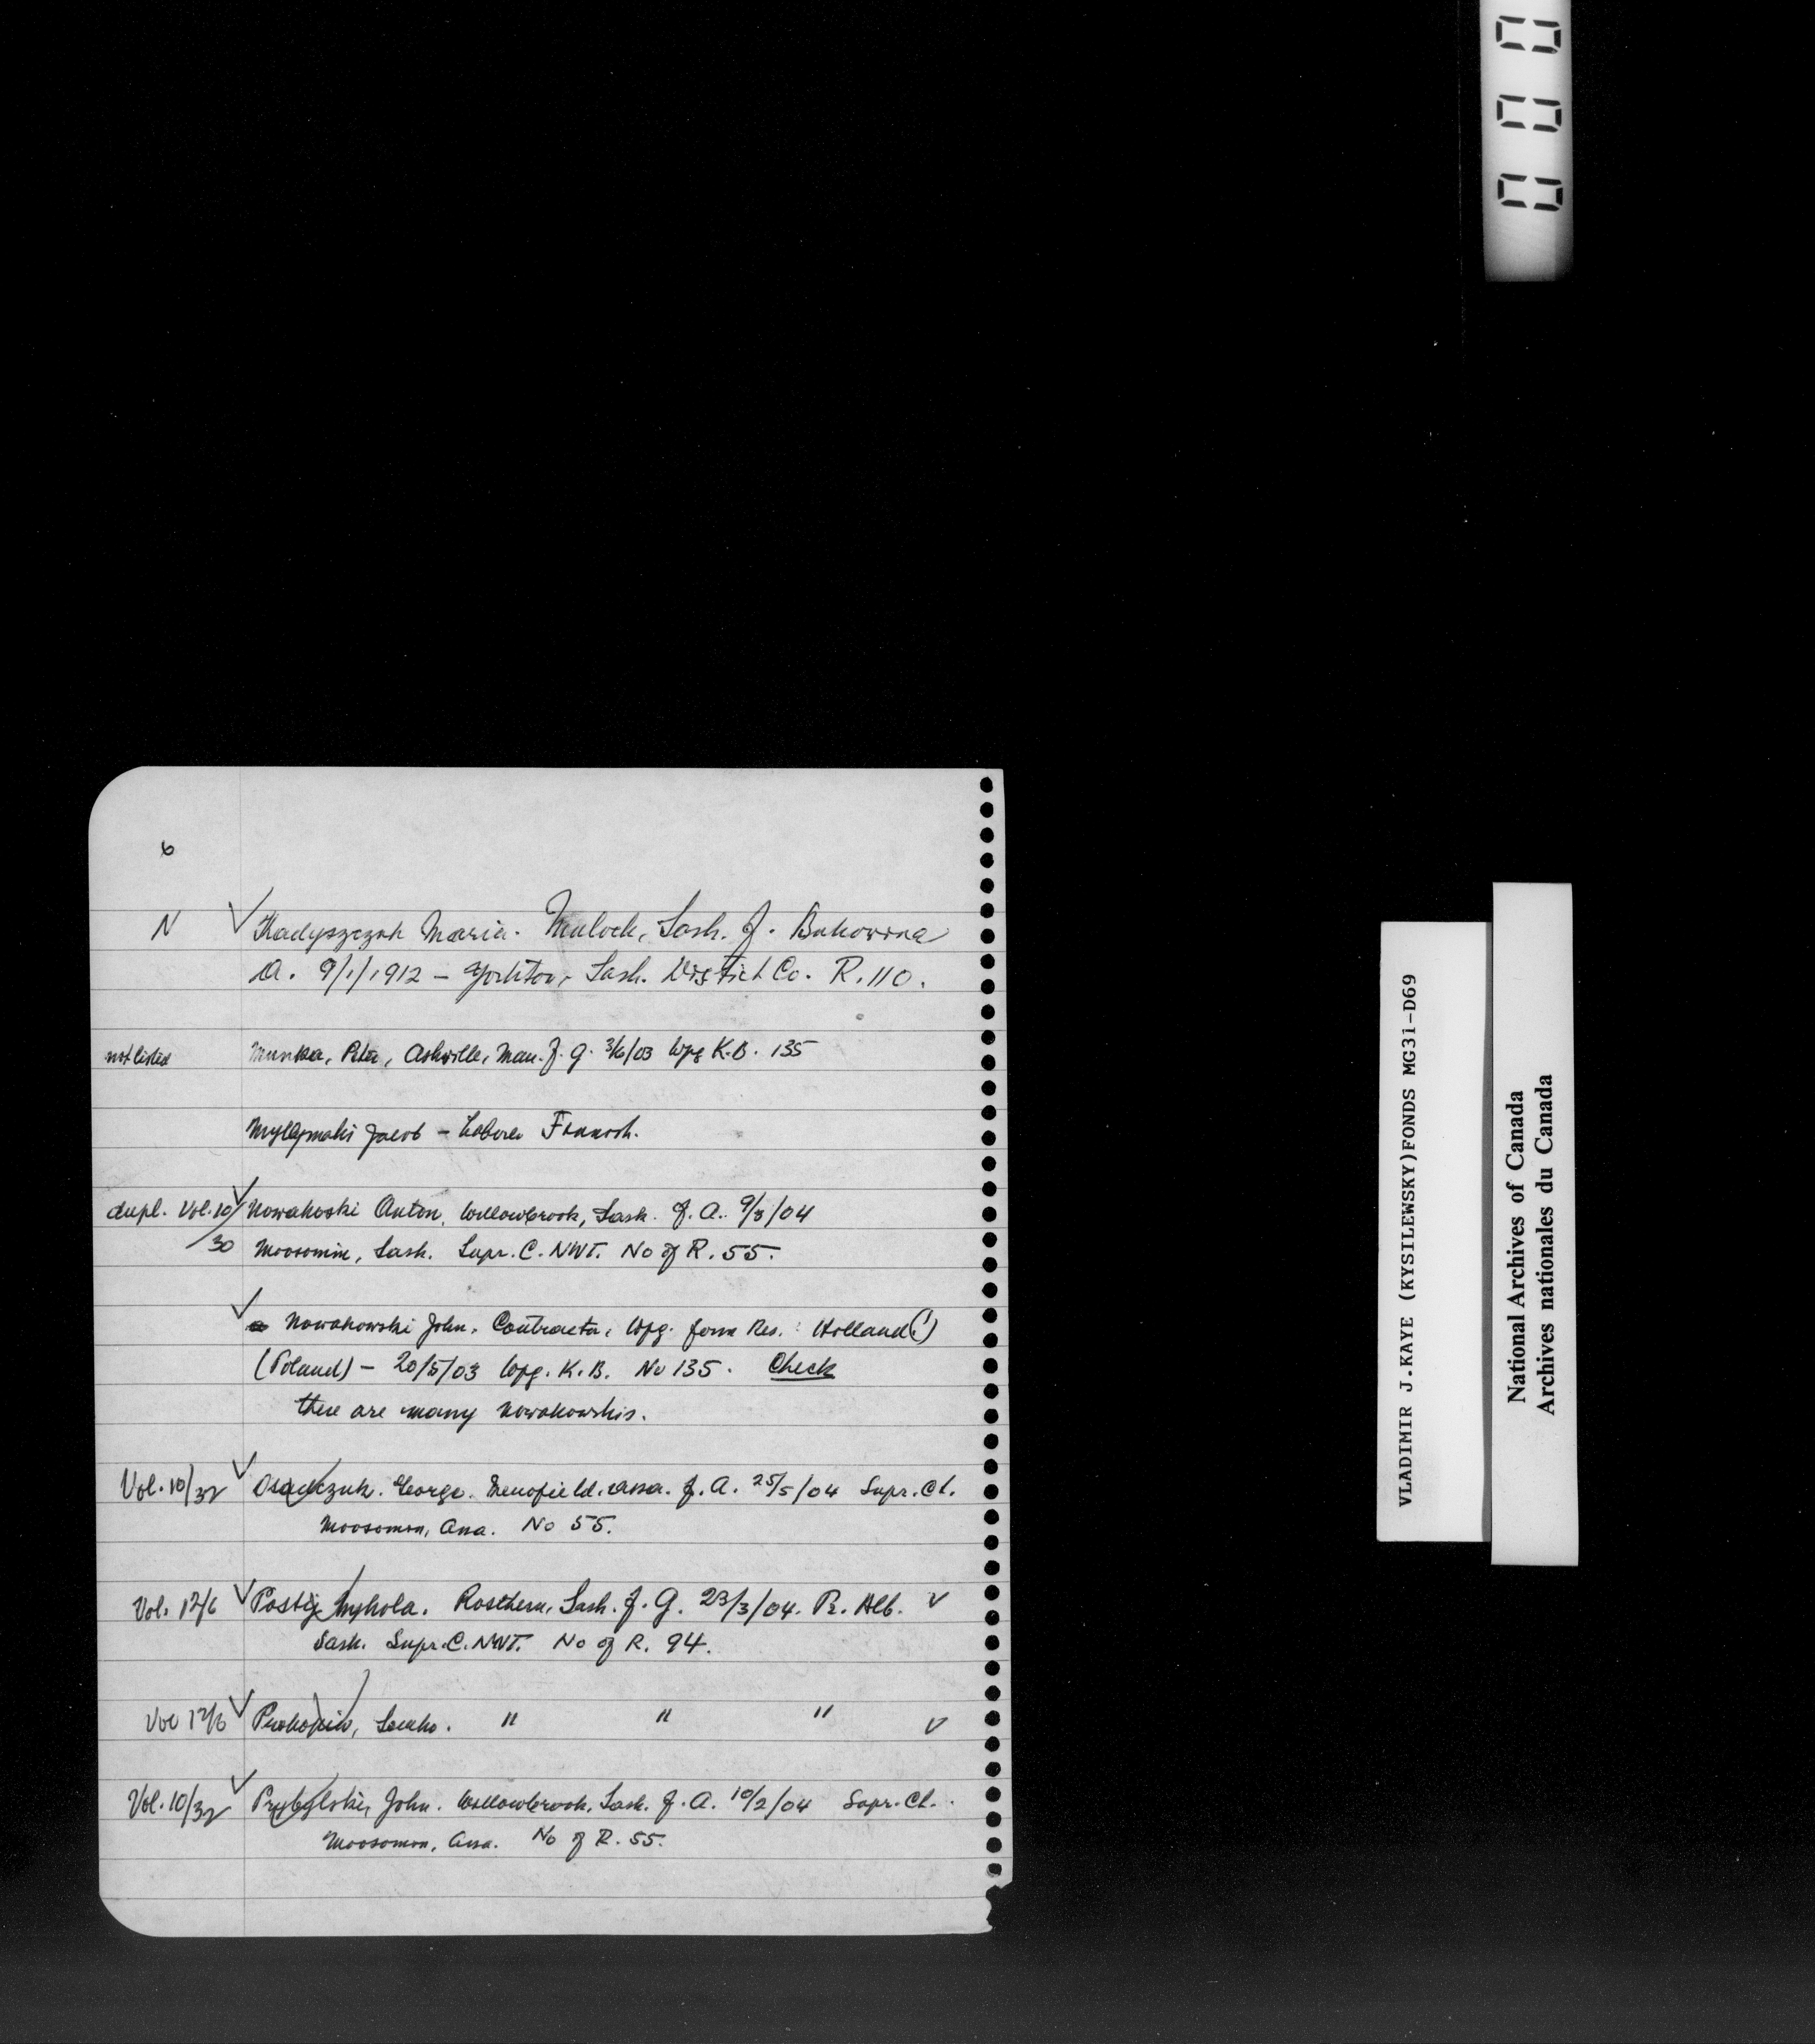 000
6
N ✓ Maria. Mulock, Sash. f. Bukowina
A. 9/1/1912 – Yorkton, Sask. District Co. R. 110.
not listed Munka, Peter, Ashville, Man. f. G. 3/6/03 Wpg K.B. 135
Jacob – Laborer
dupl. Vol. 10/30 ✓ Nowakoski Anton, Willowbrook, Sask. f. A. 9/3/04
Moosomin, Sask. Supr. C. NWT. No of R. 55.
✓ Nowakowski John, Contractor, Wpg. form Res. : Holland (!)
(Poland) – 20/5/03 Wpg. K.B. No 135. Check
there are many Nowakowskis.
Vol. 10/32 ✓ Osadczuk. George. Assa. f. A. 25/5/04 Supr. Ct.
Moosomin, Assa. No 55.
Vol. 12/6 ✓ Mykola. Rosthern, Sask. f. G. 23/3/04. Pr. Alb. ✓
Sask. Supr. C. NWT. No of R. 94.
Vol 12/6 ✓ Prokopiw, " " " ✓
Vol. 10/32 ✓ Przybylski, John. Willowbrook, Sask. f. A. 10/2/04 Supr. Ct.
Moosomin, Assa. No of R. 55.
VLADIMIR J.KAYE (KYSILEWSKY)FONDS MG31-D69
National Archives of Canada
Archives nationales du Canada